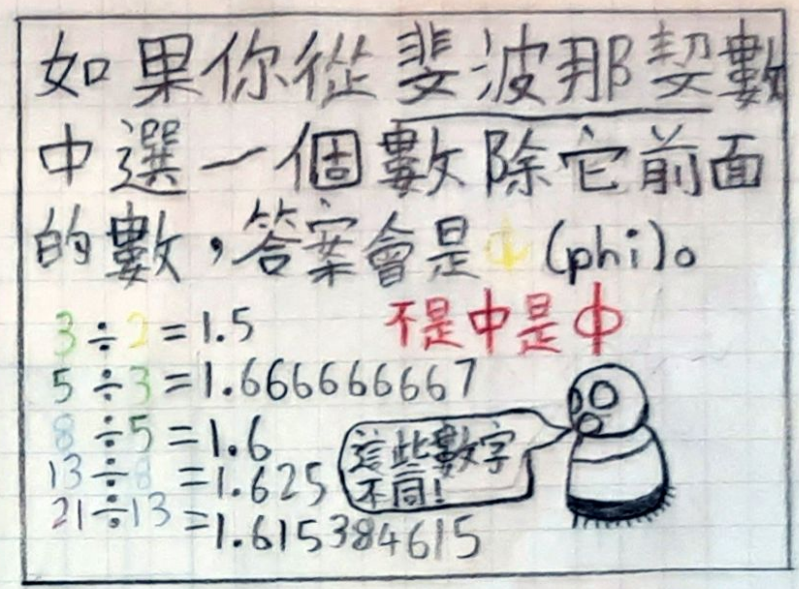 如果你從斐波那契數
中選一個數除它前面
的數，答案會是ϕ(phi)。
不是中是ϕ
3÷2=1.5
5÷3=1.666666667
8÷5=1.6
13÷8=1.625
21÷13=1.615384615
這些數字
不同!